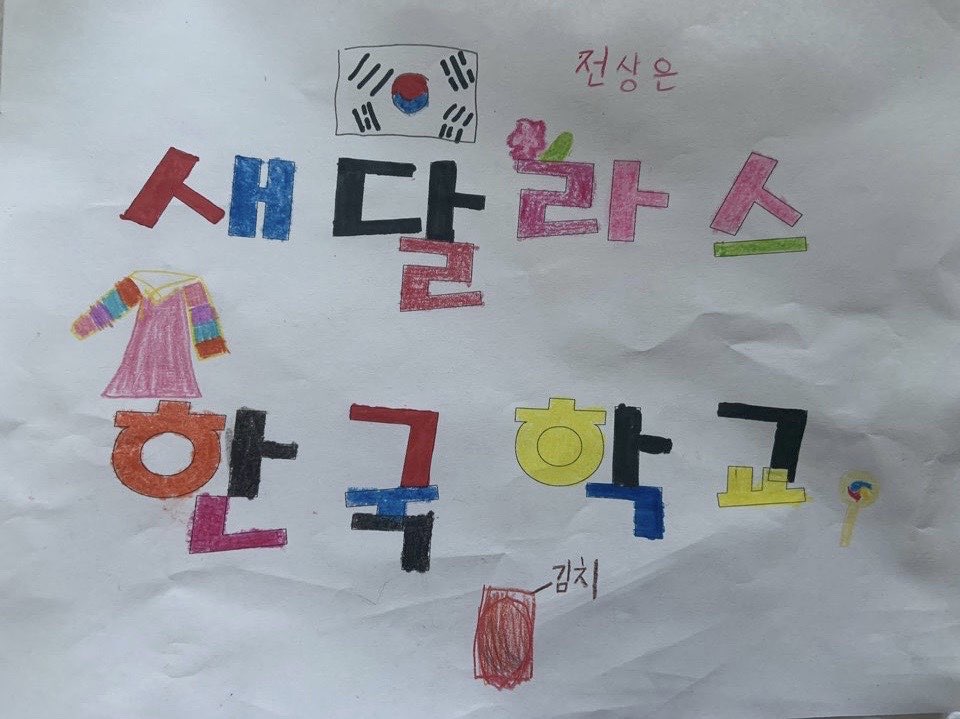 전상은
새달라스
한국학교
김치